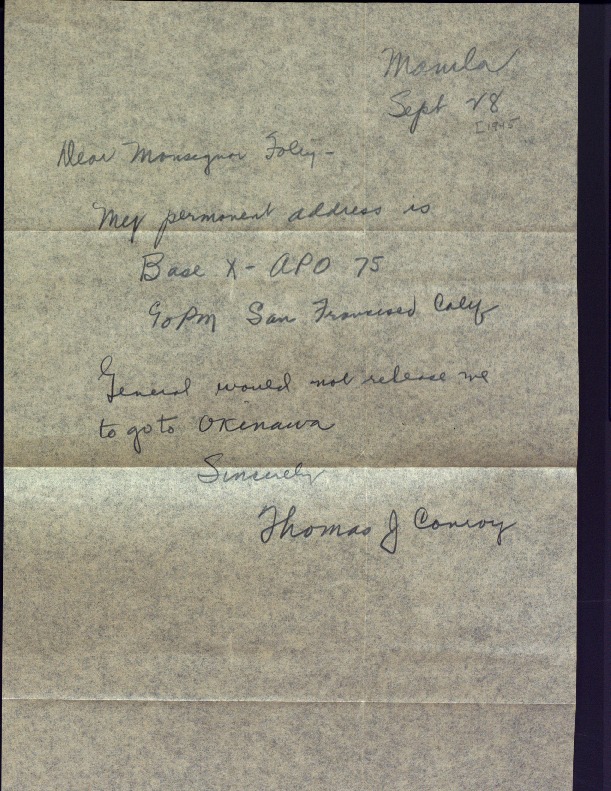 Manila
Sept 28
[1945
Dear Monsignor Foley -
My permanent address is
Base X - APO 75
%PM San Francisco Calif
General would not release me
to go to Okinawa
Sincerely
Thomas J Conroy